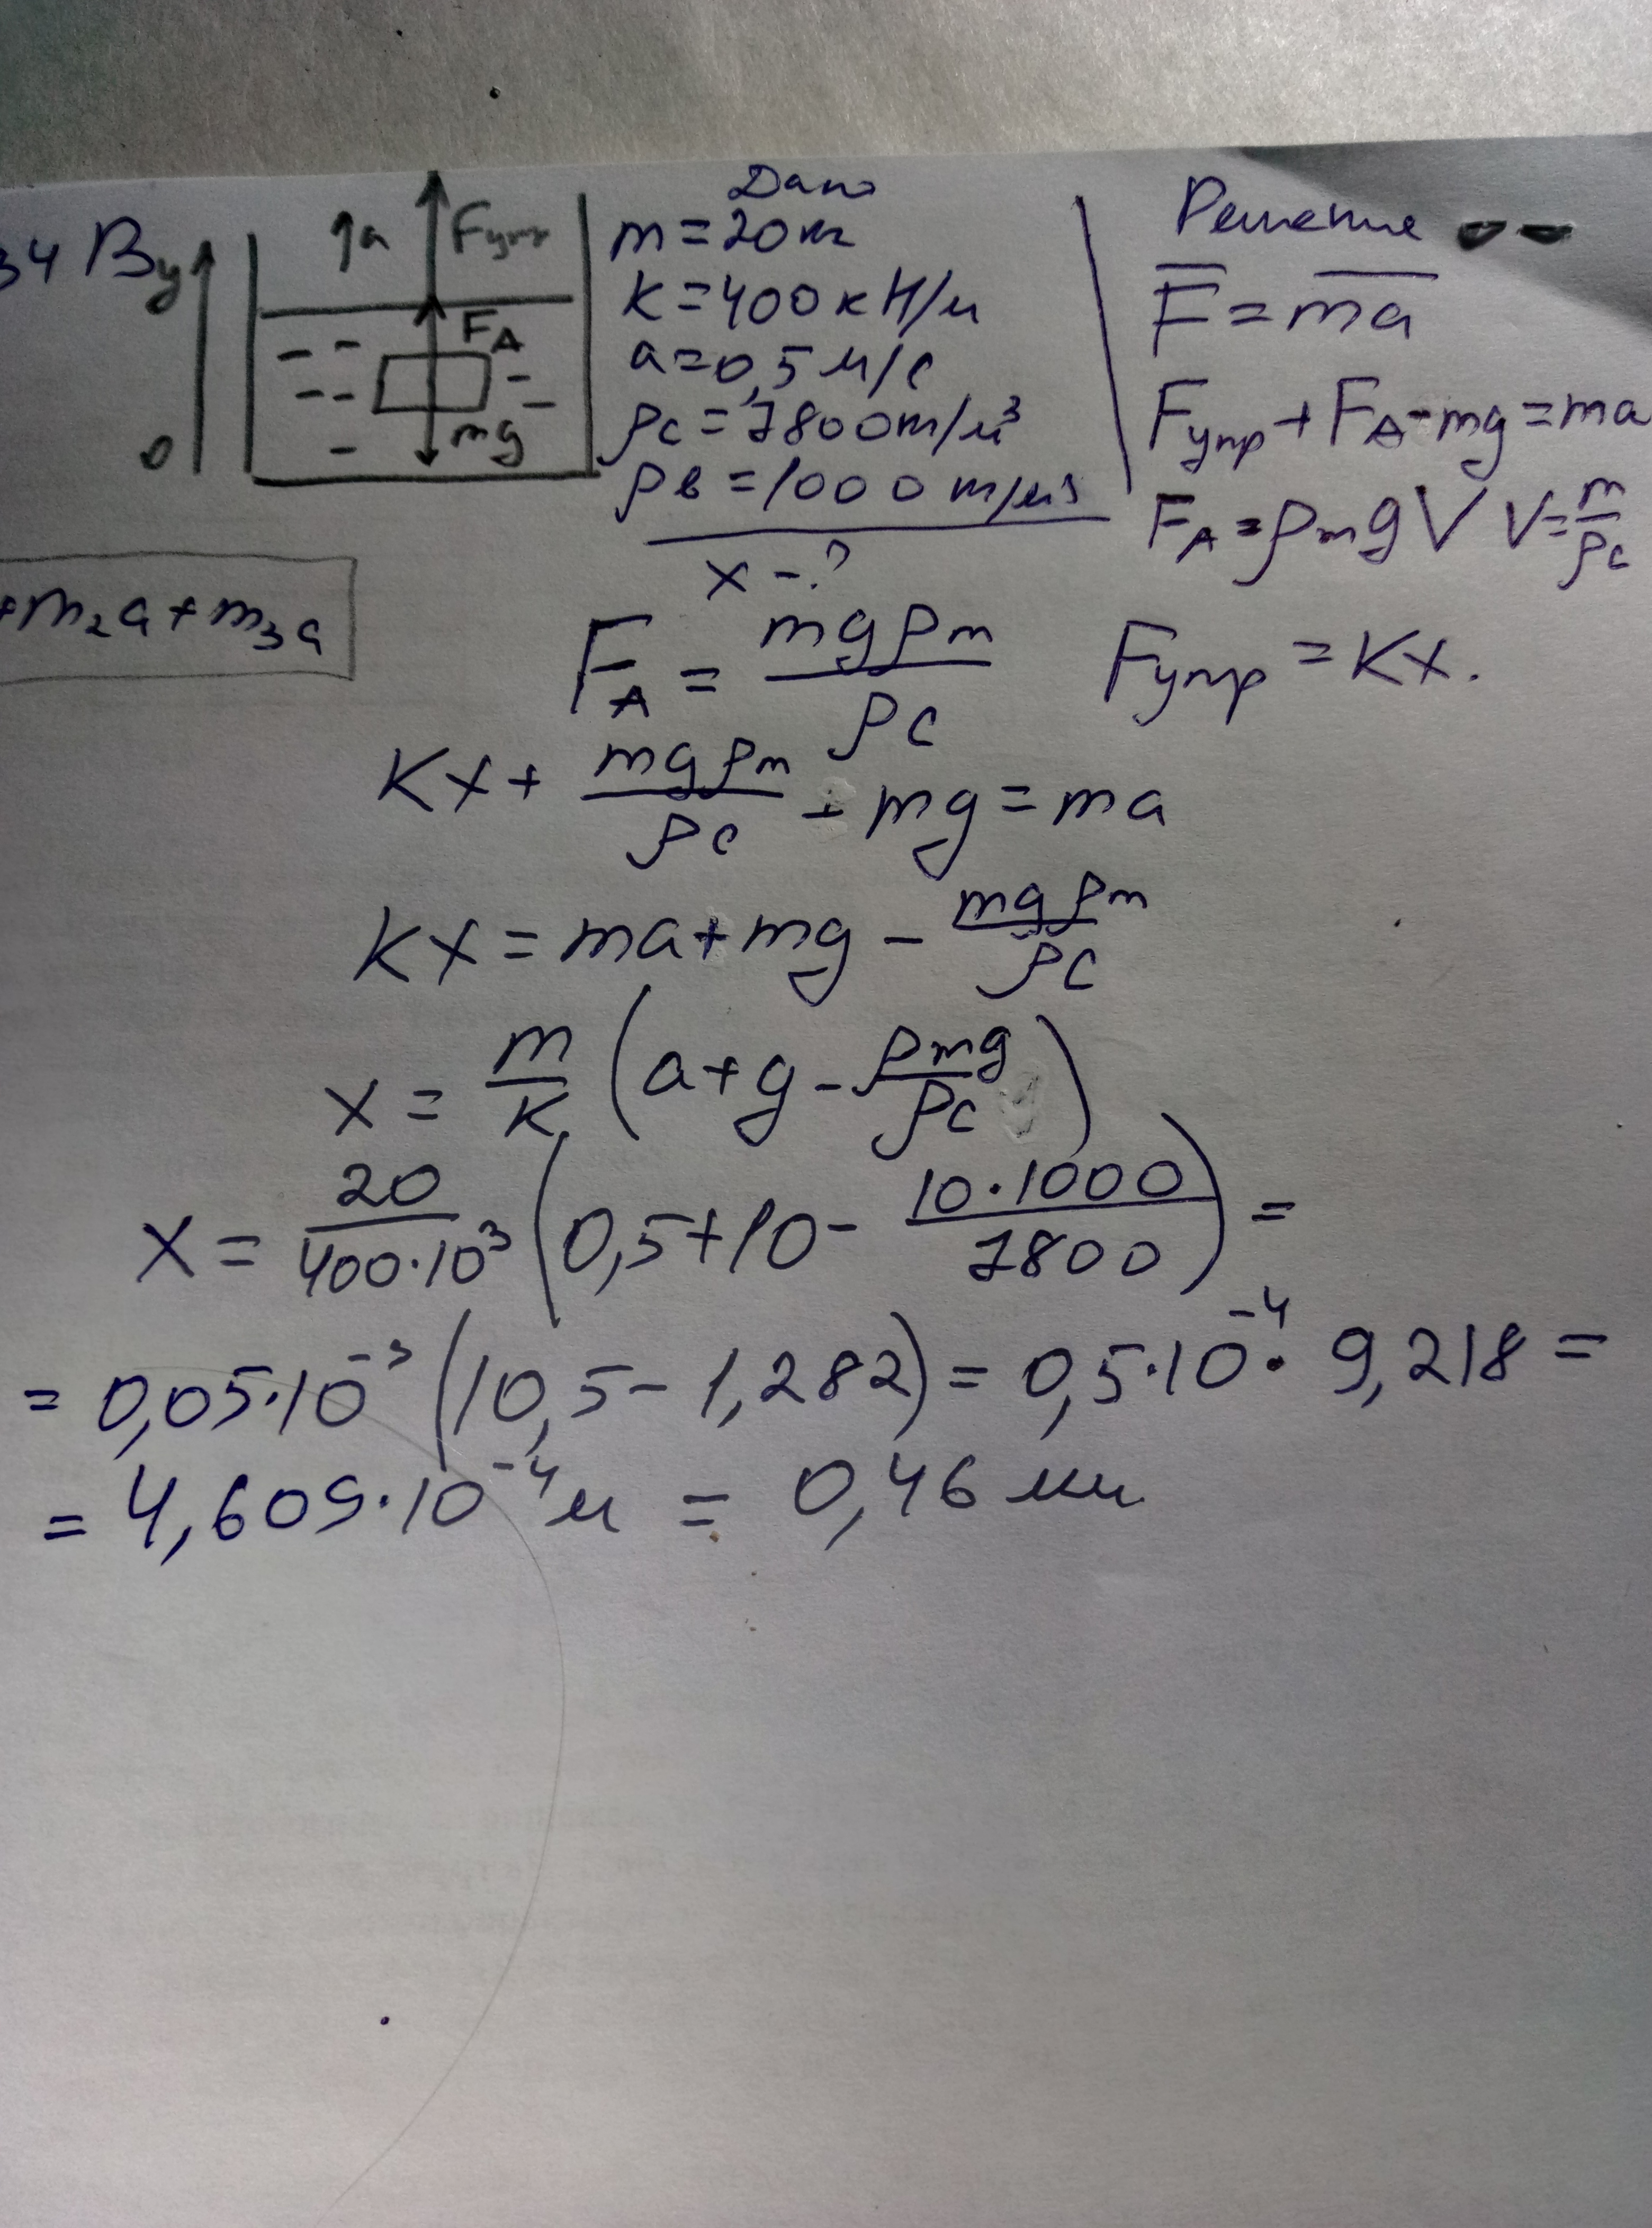 34 В
y
0
a
Fупр
FA
mg
Дано
m = 20 кг
K = 400 кН/м
a = 0,5 м/с
ρс = 7800 т/м³
ρв = 1000 т/м³
x - ?
Решение
F = ma
Fупр + FA - mg = ma
FA = ρm g V V = m/ρс
+m₂a + m₃a
FA = mgρm/ρс Fупр = Kx.
Kx + mgρm/ρс - mg = ma
Kx = ma + mg - mgρm/ρс
x = m/K (a + g - ρmg/ρс)
x = 20/400·10³ (0,5 + 10 - 10·1000/7800) =
= 0,05·10⁻³ (10,5 - 1,282) = 0,5·10⁻⁴ · 9,218 =
= 4,609·10⁻⁴ м = 0,46 мм